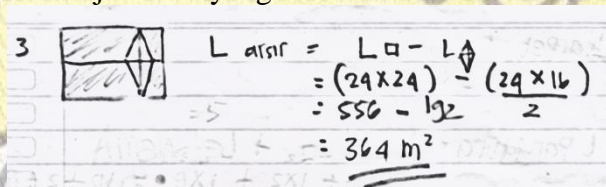 3 L arsir = L □ - L
= (24 x 24) - (24 x 16)
2
= 556 - 192
= 364 m²